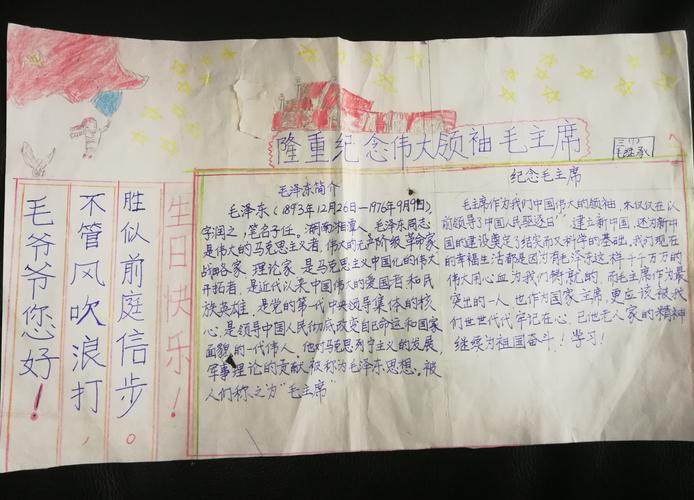 隆重纪念伟大领袖毛主席
三(1)
生日快乐！
胜似前庭信步。
不管风吹浪打，
毛爷爷您好！
毛泽东简介
毛泽东(1893年12月26日—1976年9月9日),
字润之,笔名子任。湖南湘潭人。毛泽东同志
是伟大的马克思主义者,伟大的无产阶级革命家
战略家 理论家 是马克思主义中国化的伟大
开拓者,是近代以来中国伟大的爱国者和民
族英雄,是党的第一代中央领导集体的核
心,是领导中国人民彻底改变自己命运和国家
面貌的一代伟人。他对马克思列宁主义的发展,
军事理论的贡献被称为毛泽东思想。被
人们称之为“毛主席”
纪念毛主席
毛主席作为我们中国伟大的领袖,不仅仅在以
前领导了中国人民驱逐日 建立新中国,还为新中
国的建设奠定了结实而又科学的基础。我们现在
的幸福生活都是因为有毛泽东这样千千万万的
伟大用心血为我们铸就的 而毛主席作为最
突出的一人 也作为国家主席,更应该被我
们世世代代牢记在心,已他老人家的精神
继续为祖国奋斗！学习！